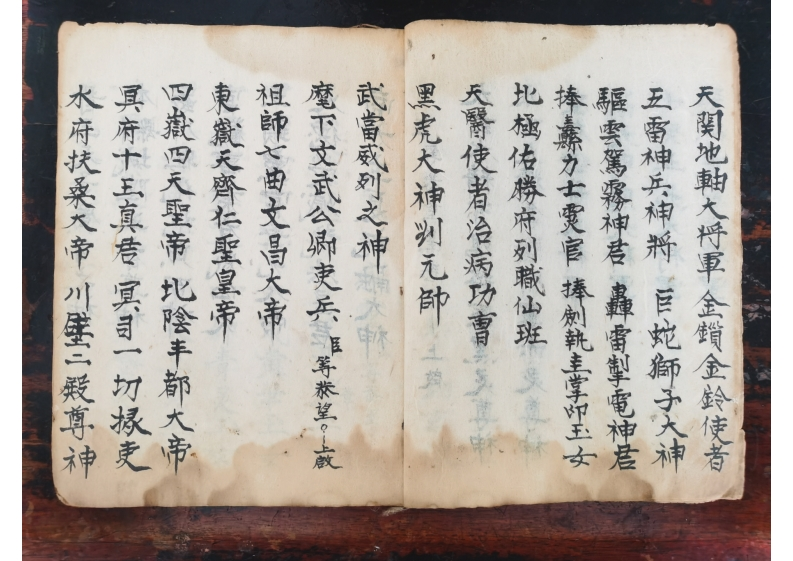 天関地軸大将軍 金鎖金鈴使者
五雷神兵神将 巨蛇獅子大神
驅雲駕霧神君 轟雷掣電神君
捧纛力士灵官 捧劍執圭掌印玉女
北極佑勝府列職仙班
天醫使者治病功曹
黑虎大神刘元帥
武當威列之神
麾下文武公卿吏兵 臣等恭望 上啟
祖師七曲文昌大帝
東嶽天齊仁聖皇帝
四嶽四天聖帝 北陰丰都大帝
冥府十王真君 冥司一切掾吏
水府扶桑大帝 川壁二殿尊神